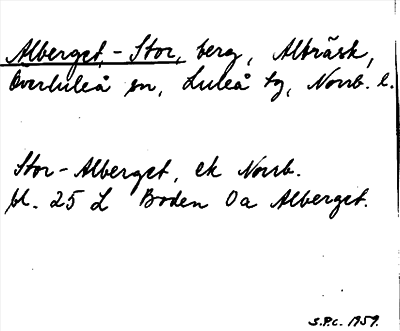 Alberget, - Stor, berg, Alträsk,
Överluleå sn, Luleå tg, Norrb. l.
Stor-Alberget, ek Norrb.
bl. 25 L Boden Oa Alberget.
S.P.C. 1959.